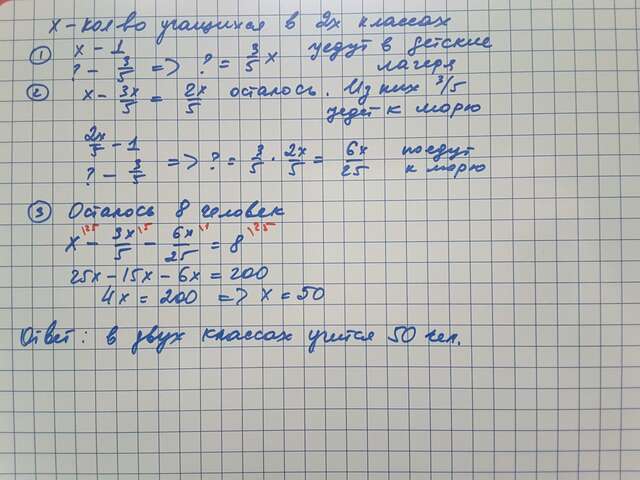 x - кол во учащихся в 2х классах
① x - 1
? - 3/5 => ? = 3/5 x уедут в детские лагеря
② x - 3x/5 = 2x/5 осталось. Из них 3/5 уедет к морю
2x/5 - 1
? - 3/5 => ? = 3/5 · 2x/5 = 6x/25 поедут к морю
③ Осталось 8 человек
x \25 - 3x/5 \5 - 6x/25 \1 = 8 \25
25x - 15x - 6x = 200
4x = 200 => x = 50
Ответ: в двух классах учится 50 чел.